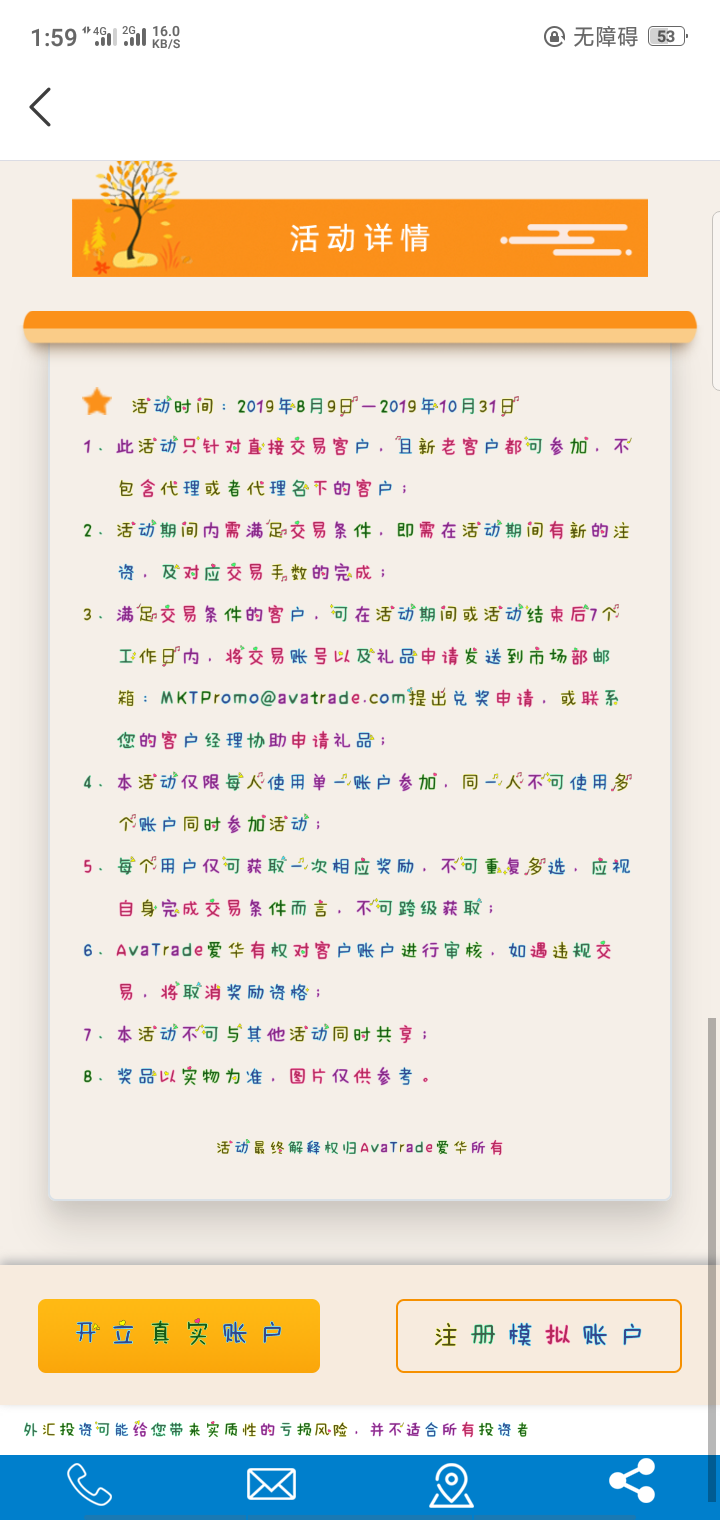 1:59 4G 2G 16.0 KB/S 无障碍 53
活动详情
活动时间：2019年8月9日—2019年10月31日
1、此活动只针对直接交易客户，且新老客户都可参加，不
包含代理或者代理名下的客户；
2、活动期间内需满足交易条件，即需在活动期间有新的注
资，及对应交易手数的完成；
3、满足交易条件的客户，可在活动期间或活动结束后7个
工作日内，将交易账号以及礼品申请发送到市场部邮
箱：MKTPromo@avatrade.com提出兑奖申请，或联系
您的客户经理协助申请礼品；
4、本活动仅限每人使用单一账户参加，同一人不可使用多
个账户同时参加活动；
5、每个用户仅可获取一次相应奖励，不可重复多选，应视
自身完成交易条件而言，不可跨级获取；
6、AvaTrade爱华有权对客户账户进行审核，如遇违规交
易，将取消奖励资格；
7、本活动不可与其他活动同时共享；
8、奖品以实物为准，图片仅供参考。
活动最终解释权归AvaTrade爱华所有
开立真实账户
注册模拟账户
外汇投资可能给您带来实质性的亏损风险，并不适合所有投资者